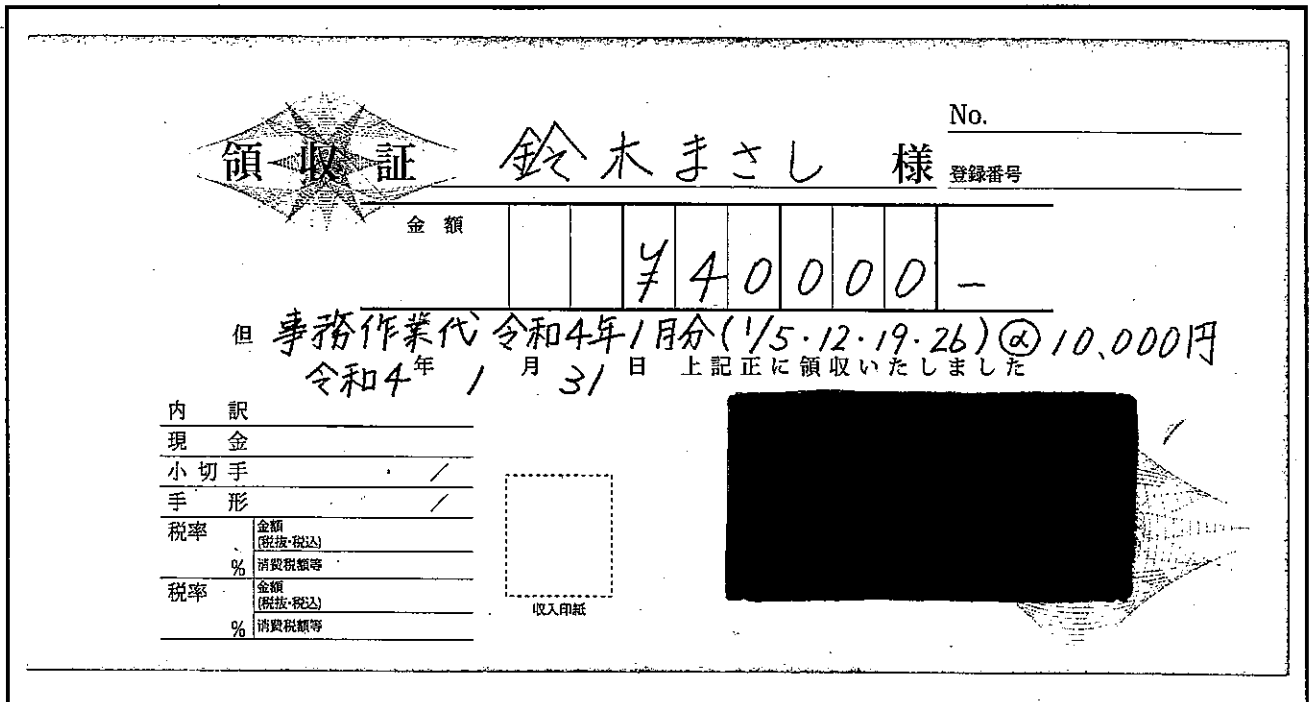 No.
領収証 鈴木まさし 様
登録番号
金額 ¥40000-
但 事務作業代 令和4年1月分(1/5・12・19・26)@10,000円
令和4年 1月 31日 上記正に領収いたしました
内訳
現金
小切手 /
手形 /
税率 % 金額(税抜・税込)
消費税額等
税率 % 金額(税抜・税込)
消費税額等
収入印紙